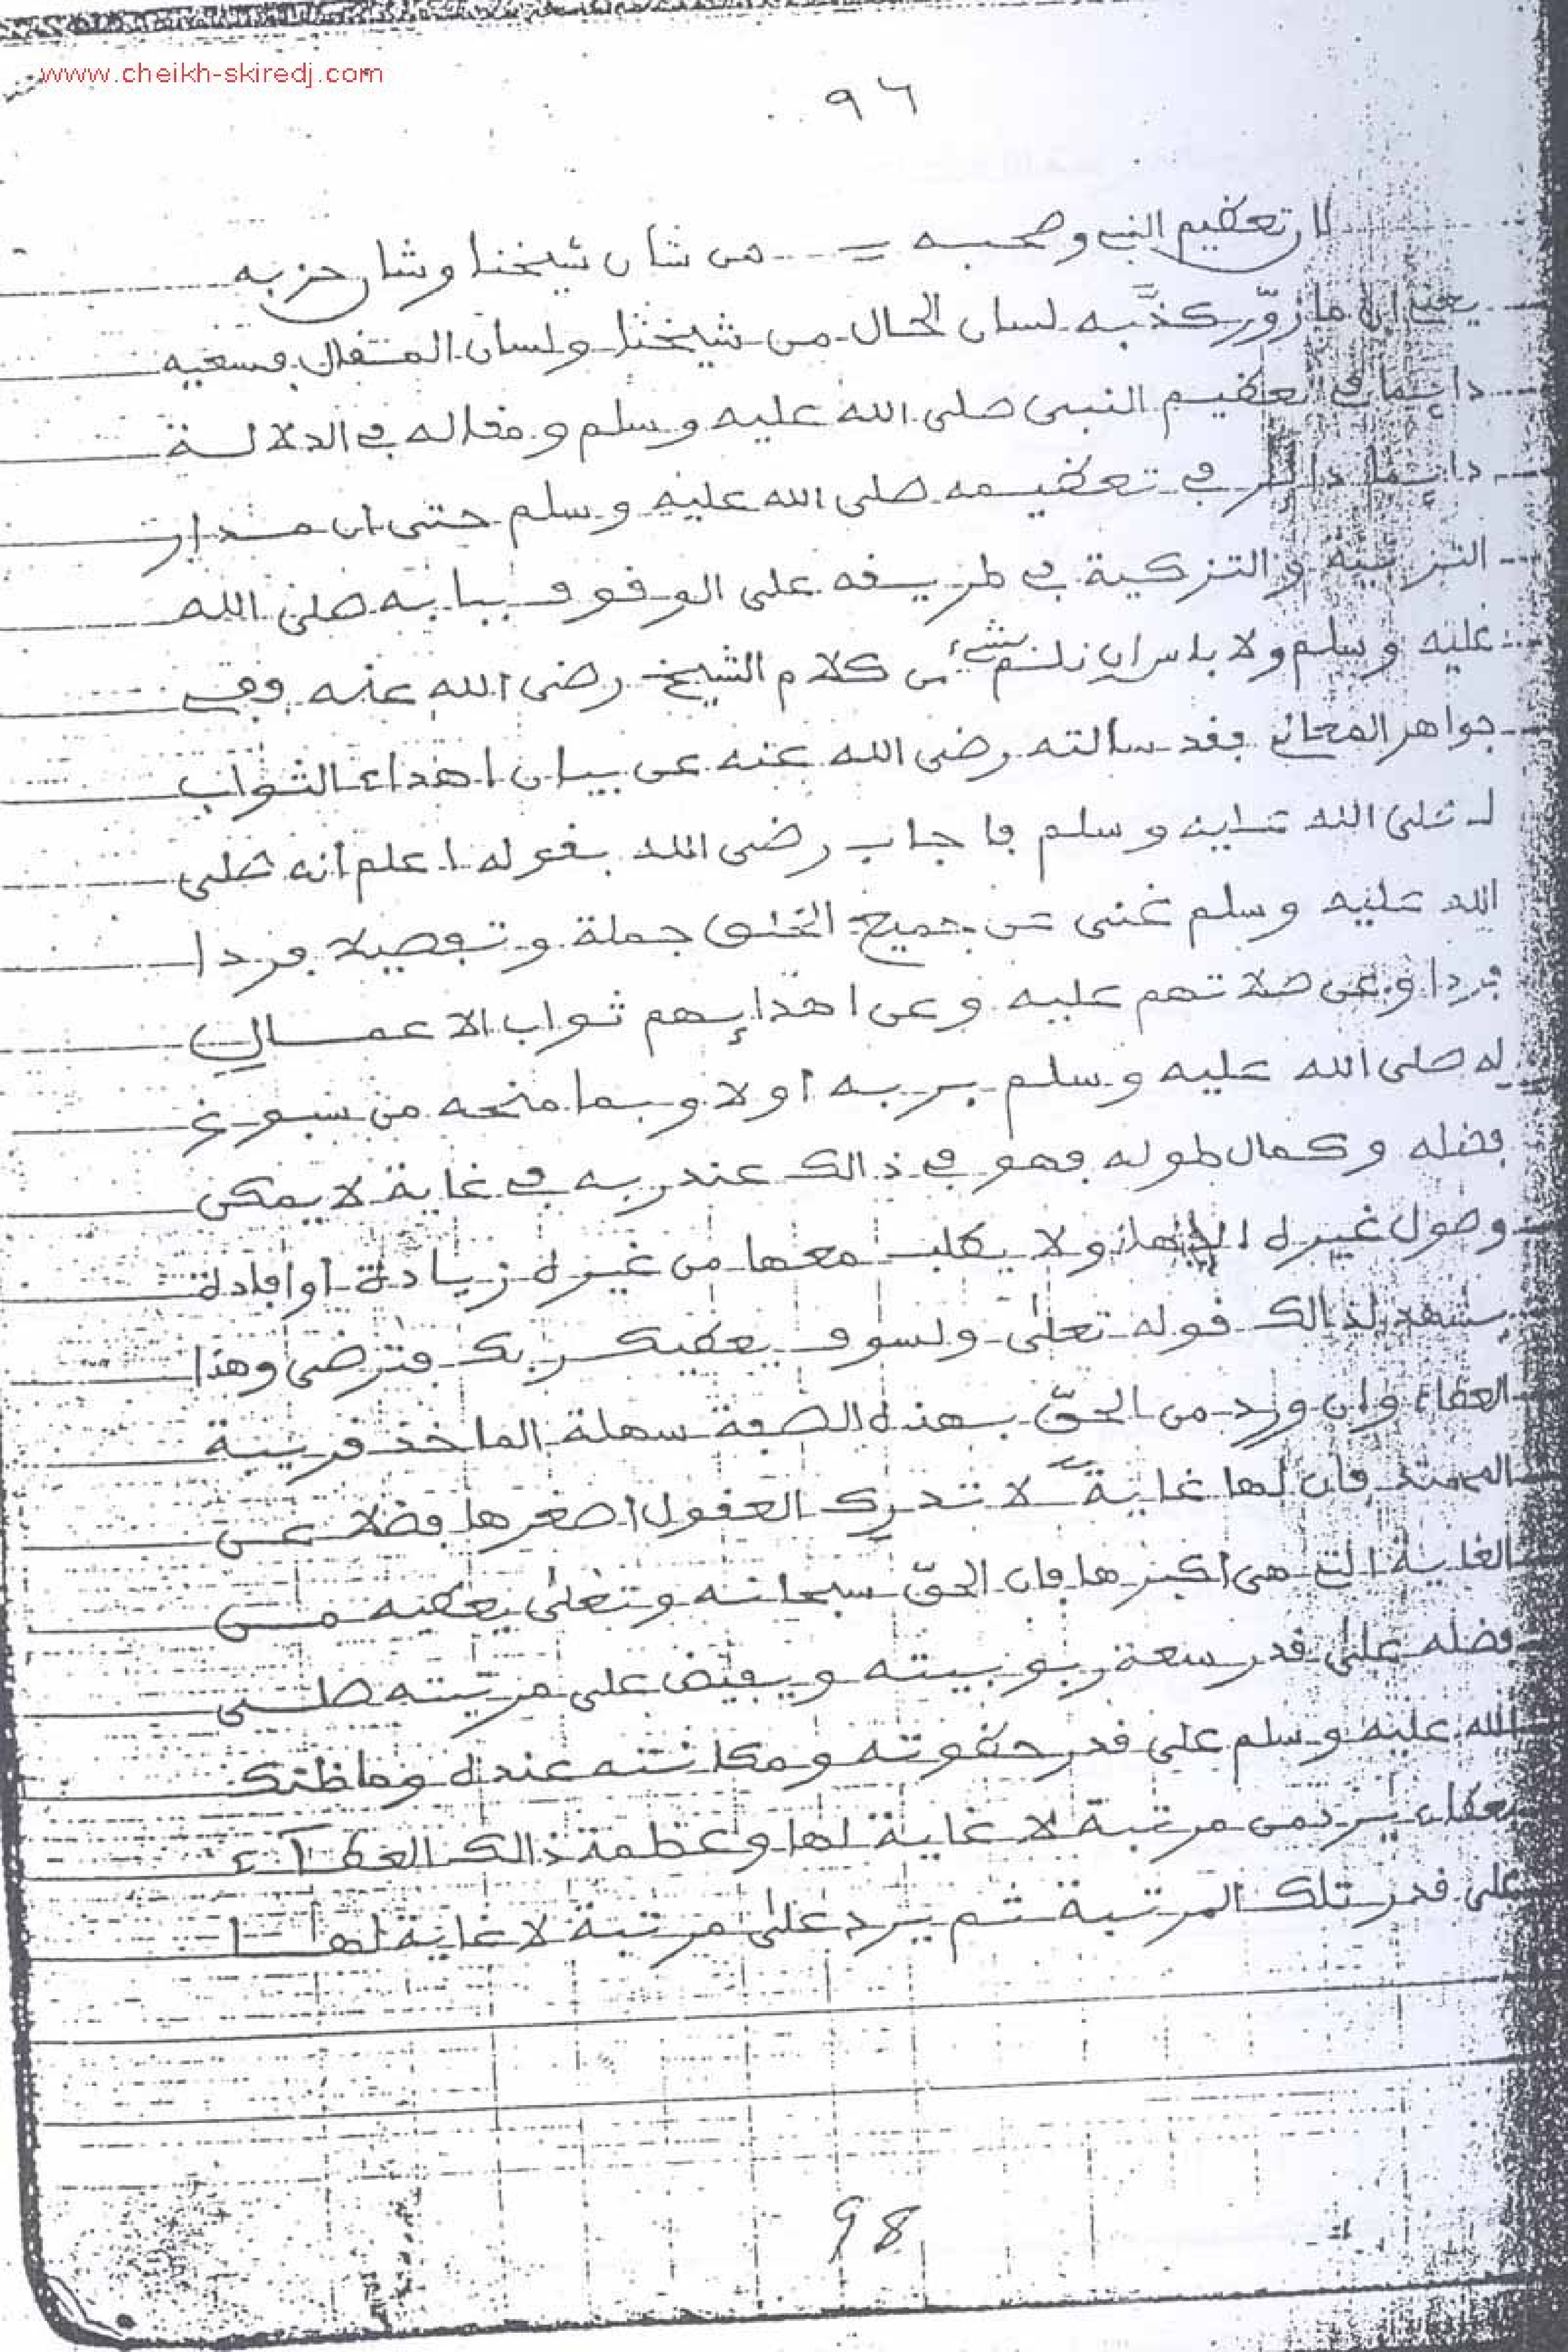 www.cheikh-skiredj.com
٩٦
لان تعظيم النبي وصحبه = من شان شيخنا وشان حزبه
يعني ان ما زوّر كذّبه لسان الحال من شيخنا ولسان المقال فسعيه
دائما في تعظيم النبي صلى الله عليه وسلم ومقاله في الدلالة
دائما دائر في تعظيمه صلى الله عليه وسلم حتى ان مدار
التربية والتزكية في طريقه على الوقوف ببابه صلى الله
عليه وسلم ولا باس ان نلم بشيء من كلام الشيخ رضى الله عنه ففي
جواهر المعاني فقد سالته رضى الله عنه عن بيان اهداء الثواب
له صلى الله عليه وسلم فاجاب رضى الله بقوله اعلم انه صلى
الله عليه وسلم غنى عن جميع الخلق جملة وتفصيلا فردا
فردا وعن صلاتهم عليه وعن اهدائهم ثواب الاعمال
له صلى الله عليه وسلم بربه اولا وبما منحه من سبوغ
فضله وكمال طوله فهو في ذالك عند ربه في غاية لا يمكن
وصول غيره اليها ولا يطلب معها من غيره زيادة او افادة
يشهد لذالك قوله تعلى ولسوف يعطيك ربك فترضى وهذا
العطاء وان ورد من الحقّ بهذه الصفة سهلة الماخذ قريبة
المحتد فان لها غاية لا تدرك العقول اصغرها فضلا عن
الغاية التي هى اكبرها فان الحقّ سبحانه وتعلى يعطيه من
فضله على قدر سعة ربوبيته ويفيض على مرتبته صلى
الله عليه وسلم على قدر حظوته ومكانته عنده وما ظنك
بعطاء يرد من مرتبة لا غاية لها وعظمة ذالك العطآء
على قدر تلك المرتبة ثم يرد على مرتبة لا غاية لها
98